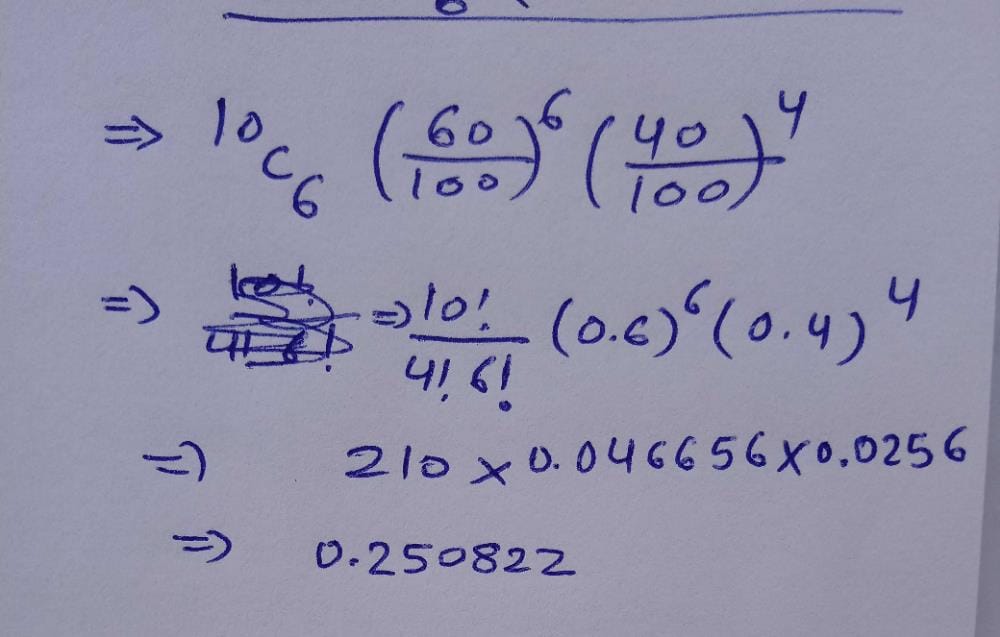 ⇒ ¹⁰C₆ (60/100)⁶ (40/100)⁴
⇒ ⇒ 10!/4! 6! (0.6)⁶ (0.4)⁴
⇒ 210 × 0.046656 × 0.0256
⇒ 0.250822